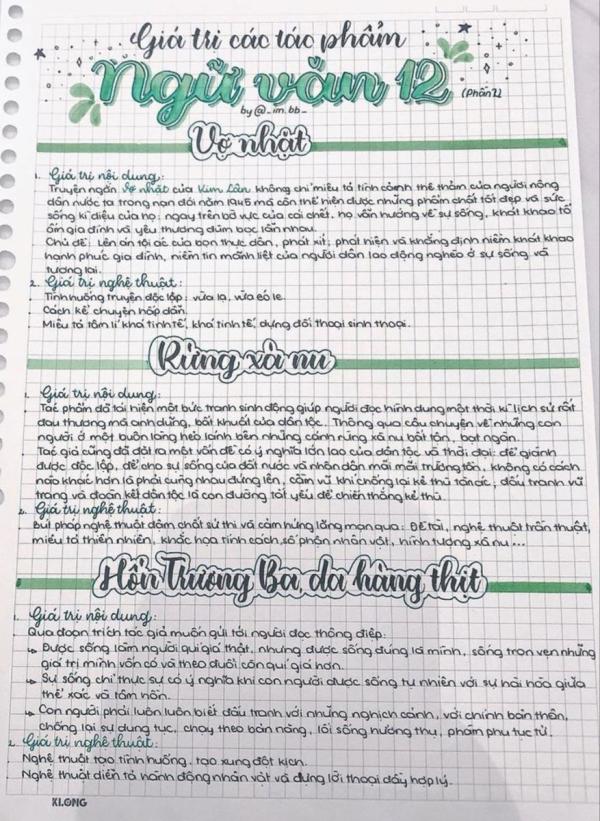 Giá trị các tác phẩm
Ngữ văn 12
(Phần 2)
by @_im.bb_
Vợ nhặt
1. Giá trị nội dung:
Truyện ngắn Vợ nhặt của Kim Lân không chỉ miêu tả tình cảnh thê thảm của người nông
dân nước ta trong nạn đói năm 1945 mà còn thể hiện được những phẩm chất tốt đẹp và sức
sống kì diệu của họ: ngay trên bờ vực của cái chết, họ vẫn hướng về sự sống, khát khao tổ
ấm gia đình và yêu thương đùm bọc lẫn nhau.
Chủ đề: Lên án tội ác của bọn thực dân, phát xít; phát hiện và khẳng định niềm khát khao
hạnh phúc gia đình, niềm tin mãnh liệt của người dân lao động nghèo ở sự sống và
tương lai.
2. Giá trị nghệ thuật:
Tình huống truyện độc lập: vừa lạ, vừa éo le.
Cách kể chuyện hấp dẫn.
Miêu tả tâm lí khá tinh tế, khá tinh tế, dựng đối thoại sinh thoại.
Rừng xà nu
1. Giá trị nội dung:
Tác phẩm đã tái hiện một bức tranh sinh động giúp người đọc hình dung một thời kì lịch sử rất
đau thương mà anh dũng, bất khuất của dân tộc. Thông qua câu chuyện về những con
người ở một buôn làng hẻo lánh bên những cánh rừng xà nu bất tận, bạt ngàn.
Tác giả cũng đã đặt ra một vấn đề có ý nghĩa lớn lao của dân tộc và thời đại: để giành
được độc lập, để cho sự sống của đất nước và nhân dân mãi mãi trường tồn, không có cách
nào khác hơn là phải cùng nhau đứng lên, cầm vũ khí chống lại kẻ thù tàn ác; đấu tranh vũ
trang và đoàn kết dân tộc là con đường tất yếu để chiến thắng kẻ thù.
2. Giá trị nghệ thuật:
Bút pháp nghệ thuật đậm chất sử thi và cảm hứng lãng mạn qua: Đề tài, nghệ thuật trần thuật,
miêu tả thiên nhiên, khắc họa tính cách, số phận nhân vật, hình tượng xà nu...
Hồn Trương Ba, da hàng thịt
1. Giá trị nội dung:
Qua đoạn trích tác giả muốn gửi tới người đọc thông điệp:
↳ Được sống làm người quí giá thật, nhưng được sống đúng là mình, sống trọn vẹn những
giá trị mình vốn có và theo đuổi còn quí giá hơn.
↳ Sự sống chỉ thực sự có ý nghĩa khi con người được sống tự nhiên với sự hài hòa giữa
thể xác và tâm hồn.
↳ Con người phải luôn luôn biết đấu tranh với những nghịch cảnh, với chính bản thân,
chống lại sự dung tục, chạy theo bản năng, lối sống hưởng thụ, phàm phu tục tử.
2. Giá trị nghệ thuật:
Nghệ thuật tạo tình huống, tạo xung đột kịch.
Nghệ thuật diễn tả hành động nhân vật và dựng lời thoại đầy hợp lý.
KLONG